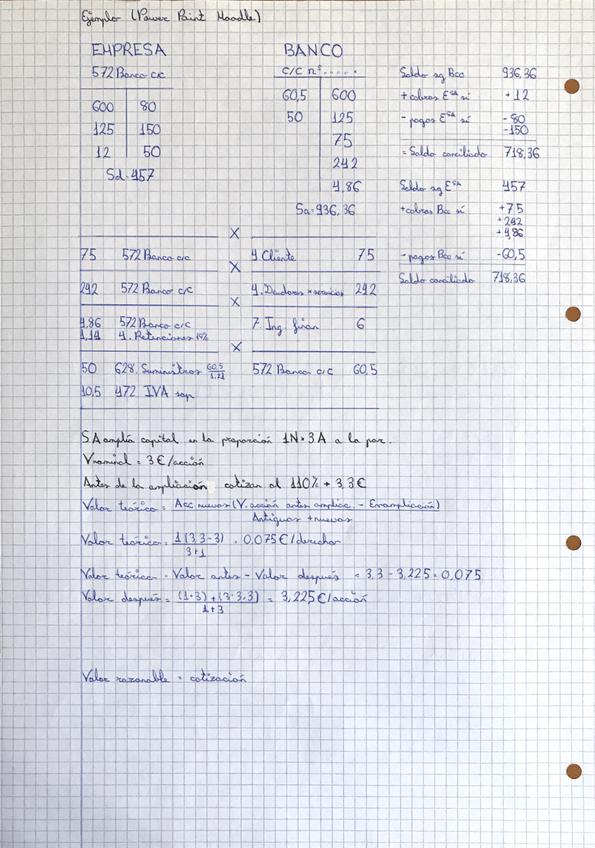 Ejemplo (Power Point Moodle)
EMPRESA
572 Banco c/c
600 80
125 150
12 50
Sd = 457
BANCO
C/C nº.....
60,5 600
50 125
75
242
4,86
Sa = 936,36
Saldo sg Bco 936,36
+ cobros Eˢᵃ sí +12
- pagos Eˢᵃ sí -80
-150
= Saldo conciliado 718,36
Saldo sg Eˢᵃ 457
+ cobros Bco sí +75
+242
+4,86
- pagos Bco sí -60,5
Saldo conciliado 718,36
x
75 572 Banco c/c 4. Cliente 75
x
242 572 Banco c/c 4. Deudores x servicios 242
x
4,86 572 Banco c/c 7. Ing finan 6
1,14 4. Retenciones 19%
x
50 628. Suministros 60,5/1,21 572 Banco c/c 60,5
10,5 472 IVA sop
SA amplía capital en la proporción 1N × 3A a la par.
Vnominal = 3€/acción
Antes de la ampliación cotizan al 110% → 3,3€
Valor teórico = Acc nuevas (V. acción antes ampliac. - Eº ampliación)
Antiguas + nuevas
Valor teórico = 1(3,3-3) = 0,075€/derecho
3+1
Valor teórico = Valor antes - Valor después = 3,3 - 3,225 = 0,075
Valor después = (1·3)+(3·3,3) = 3,225€/acción
1+3
Valor razonable = cotización